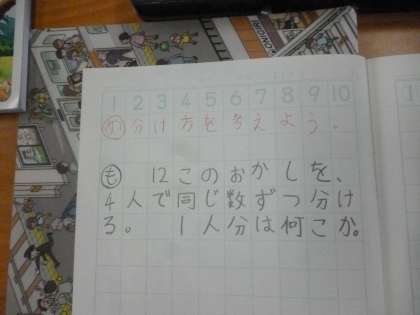 1 2 3 4 5 6 7 8 9 10
分け方を考えよう。
も 12このおかしを、
4人で同じ数ずつ分け
ろ。 1人分は何こか。